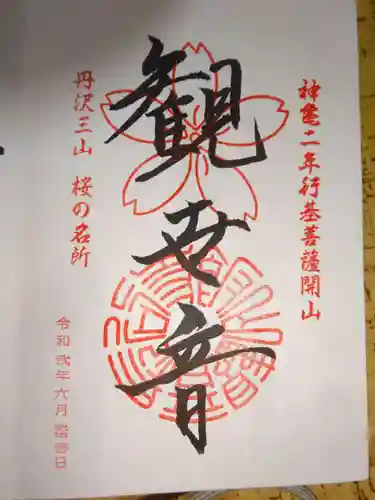 神亀二年行基菩薩開山
観世音
丹沢三山 桜の名所
令和弐年六月廿壱日